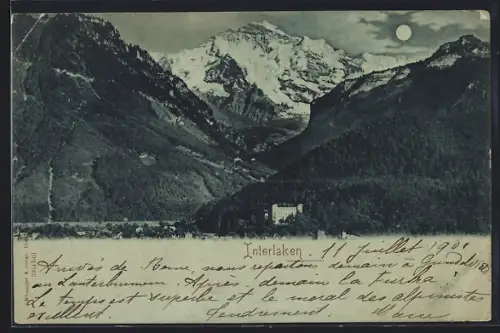 Interlaken. 11 juillet 1901
Arrivés de Berne, nous repartons demain à Grindelwald
ou Lauterbrunnen. Après demain la Furka
Le temps est superbe et le moral des alpinistes
excellent. Tendrement.